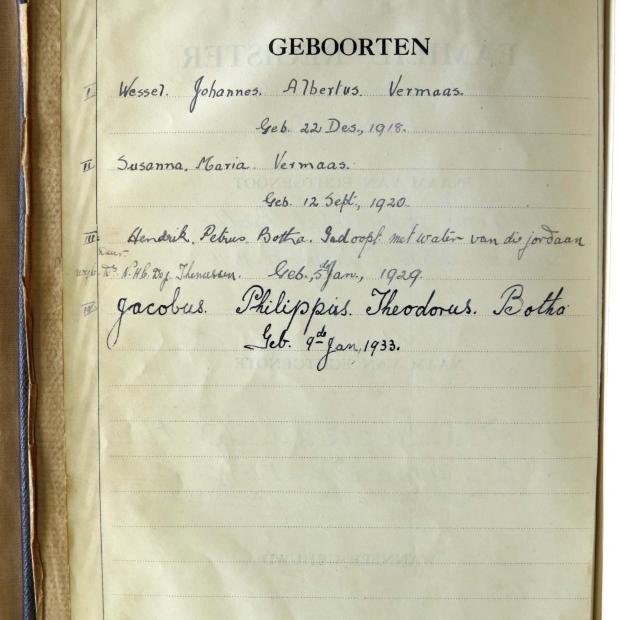 GEBOORTEN
I Wessel. Johannes. Albertus. Vermaas.
Geb. 22 Des., 1918.
II Susanna. Maria. Vermaas.
Geb. 12 Sept., 1920.
III Hendrik. Petrus. Botha. Gedoopt met water van die jordaan
Geb., 5de Jan., 1929.
IV Jacobus. Philippus. Theodorus. Botha
Geb. 9de Jan, 1933.